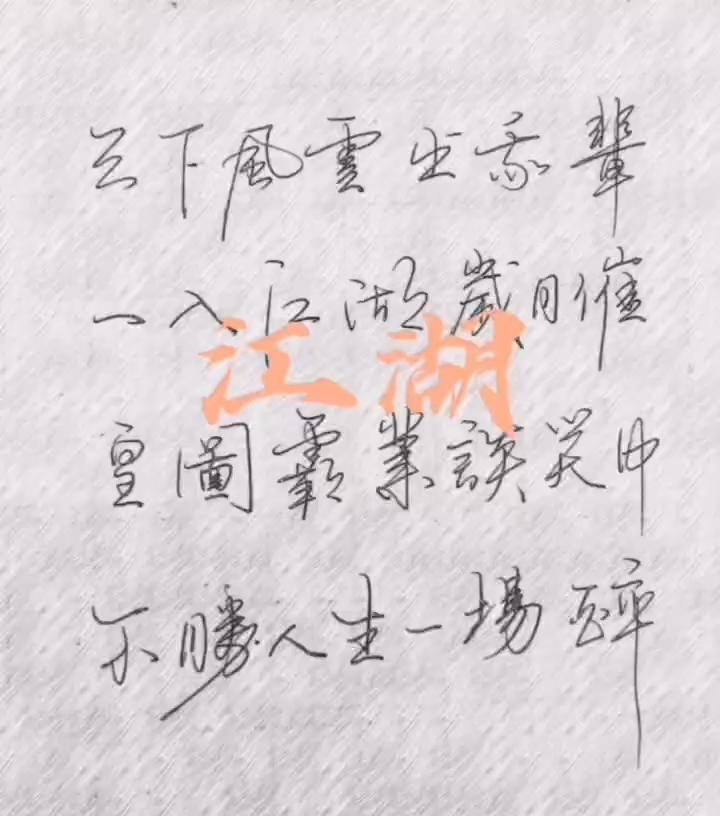 天下風雲出我輩
一入江湖歲月催
江湖
皇圖霸業談笑中
不勝人生一場醉